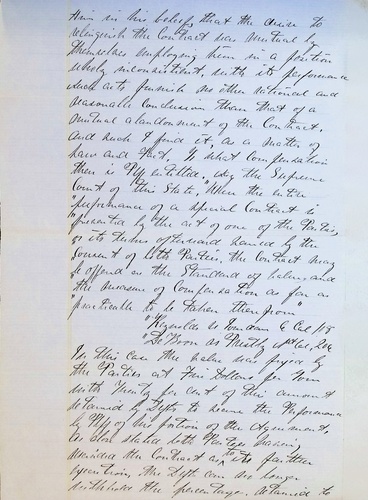 him in his belief, that the desire to
relinquish the Contract was mutual by
themselves employing them in a position
wholly inconsistent, with its performance
such acts furnish no other rational and
reasonable Conclusion than that of a
mutual abandonment of the Contract.
And such I find it, as a matter of
Law and Fact, To what Compensation
then is Plff entitled, Say the Supreme
Court of this State, "When the entire
"performance of a special Contract is
"prevented by the act of one of the Parties,
or its terms afterward varied by the
Consent of both Parties, the Contract may
be offered as the Standard of value, and
the measure of Compensation as far as
"practicable to be taken therefrom"
"Reynolds vs Jourdan 6 Cal 108
De Boom vs Priestly 1st Cal, 206
In this case the value was fixed by
the Parties at Five Dollars per Ton
with Twenty per cent of this amount
retained by Defts to secure the Performance
by Plff of his portion of the Agreement,
As above stated both Parties having
rescinded the Contract as to its further
execution, the Deft can no longer
withhold the percentage, retained to